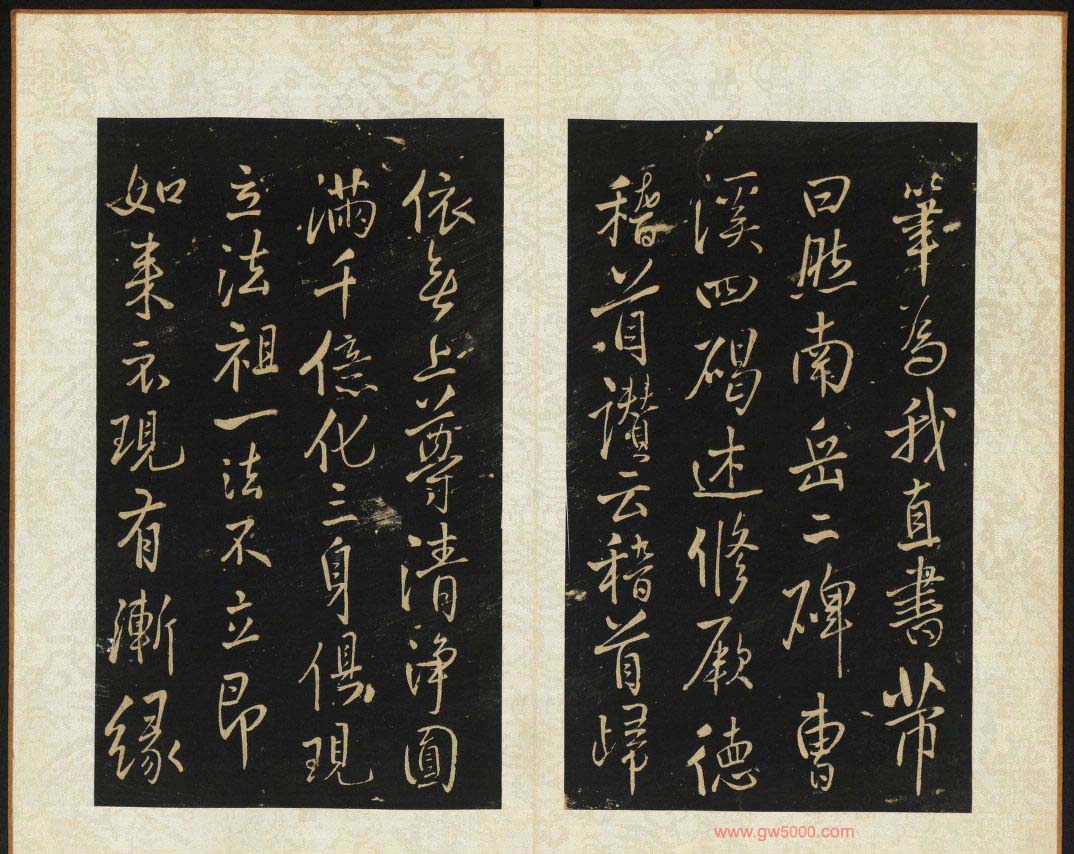 筆為我直書芾
曰然南岳二碑曹
溪四碣述修厥德
稽首讃云稽首歸
依無上尊清淨圓
滿千億化三身俱現
立法祖一法不立即
如来衣現有漸緣
www.gw5000.com